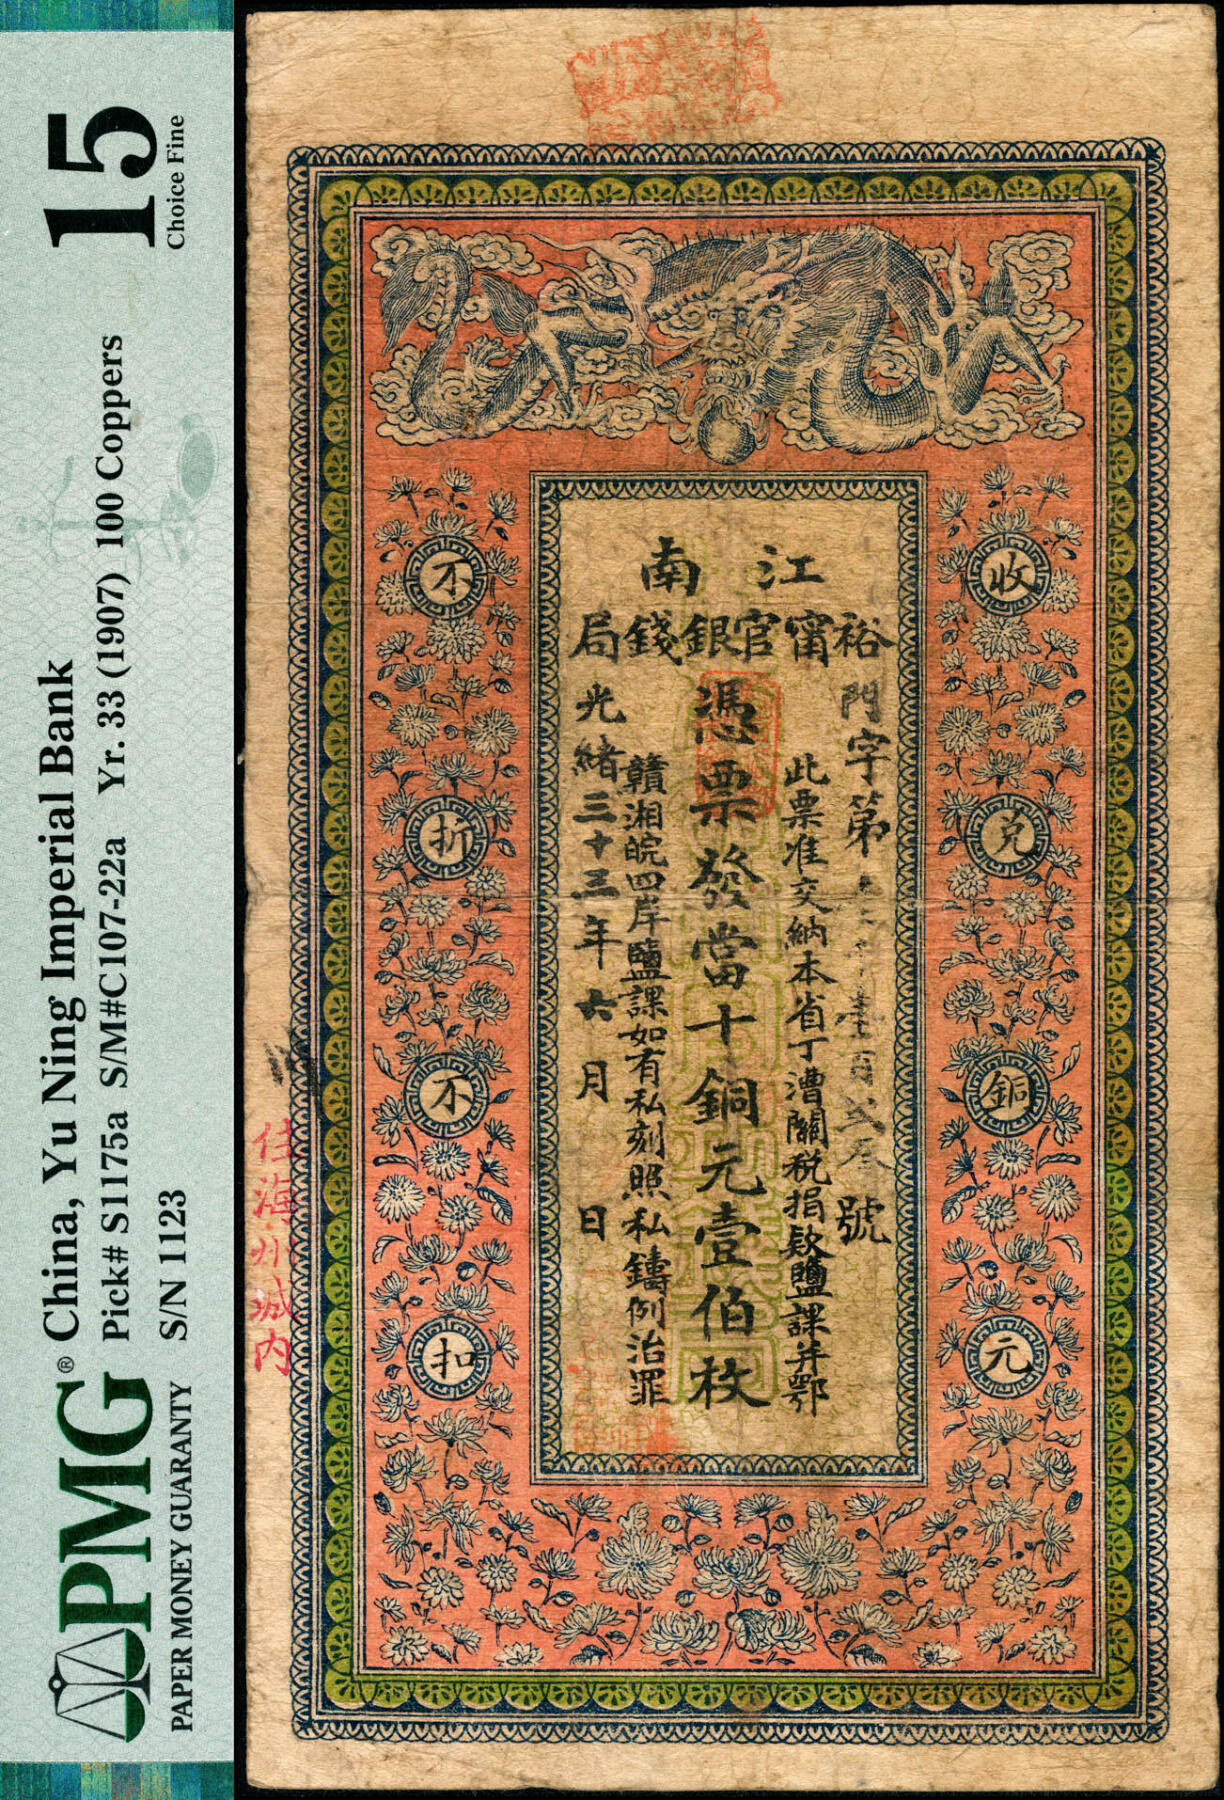 China, Yu Ning Imperial Bank
Pick# S1175a S/M#C107-22a Yr. 33 (1907) 100 Coppers
S/N 1123
15
Choice Fine
PMG®
PAPER MONEY GUARANTY
江南
裕甯官銀錢局
門字第
壹百
號
此票准交納本省丁漕關稅捐款鹽課并鄂
憑票發當十銅元壹伯枚
贛湘皖四岸鹽課如有私刻照私鑄例治罪
光緒三十三年六月 日
收兌銅元
不折不扣
州城内